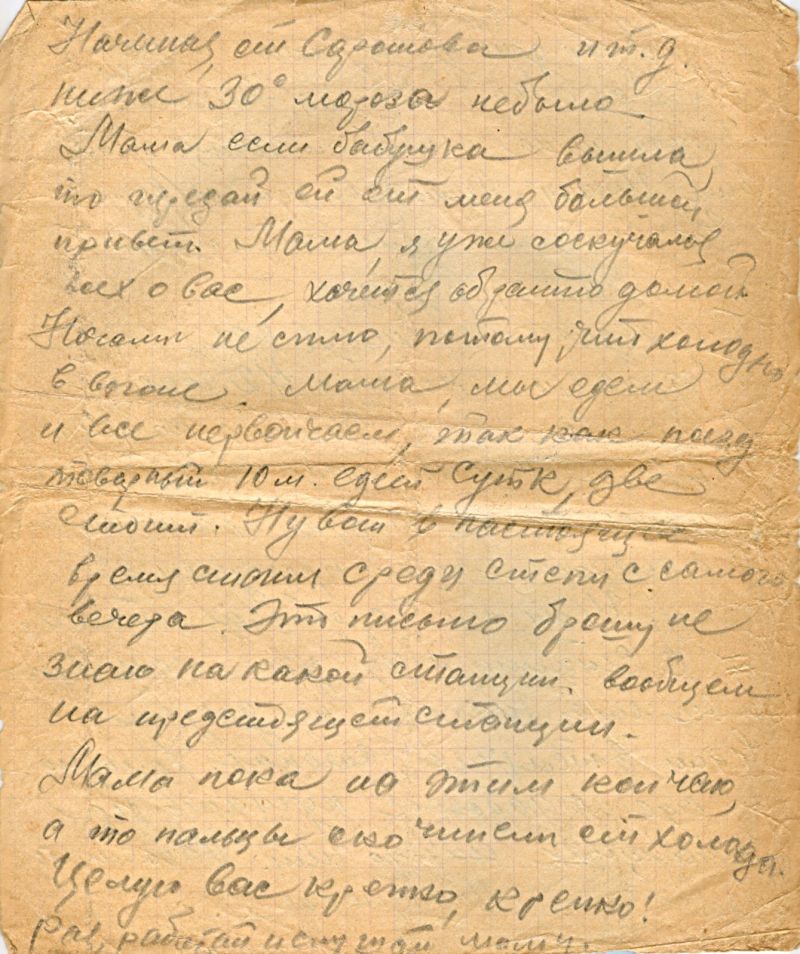 Начиная от Саратова и т.д.
ниже 30° мороза небыло
Мама если бабушка вышла,
то передай ей от меня большой
привет. Мама, я уже соскучался
всех о вас, хочется обратно домой.
Ночами не сплю, потому, что холодно
в вагоне. Мама, мы едем
и все нервничаем, так как поезд
товарный 10 м. едем сутк, две
стоим. Ну вот в настоящие
время стоим среди степи с самого
вечера. Это письмо брошу не
знаю на какой станции. вообщем
на предстоящей станции.
Мама пока на этим кончаю,
а то пальцы окочинели от холода.
Целую вас крепко, крепко!
работай и слушай маму.